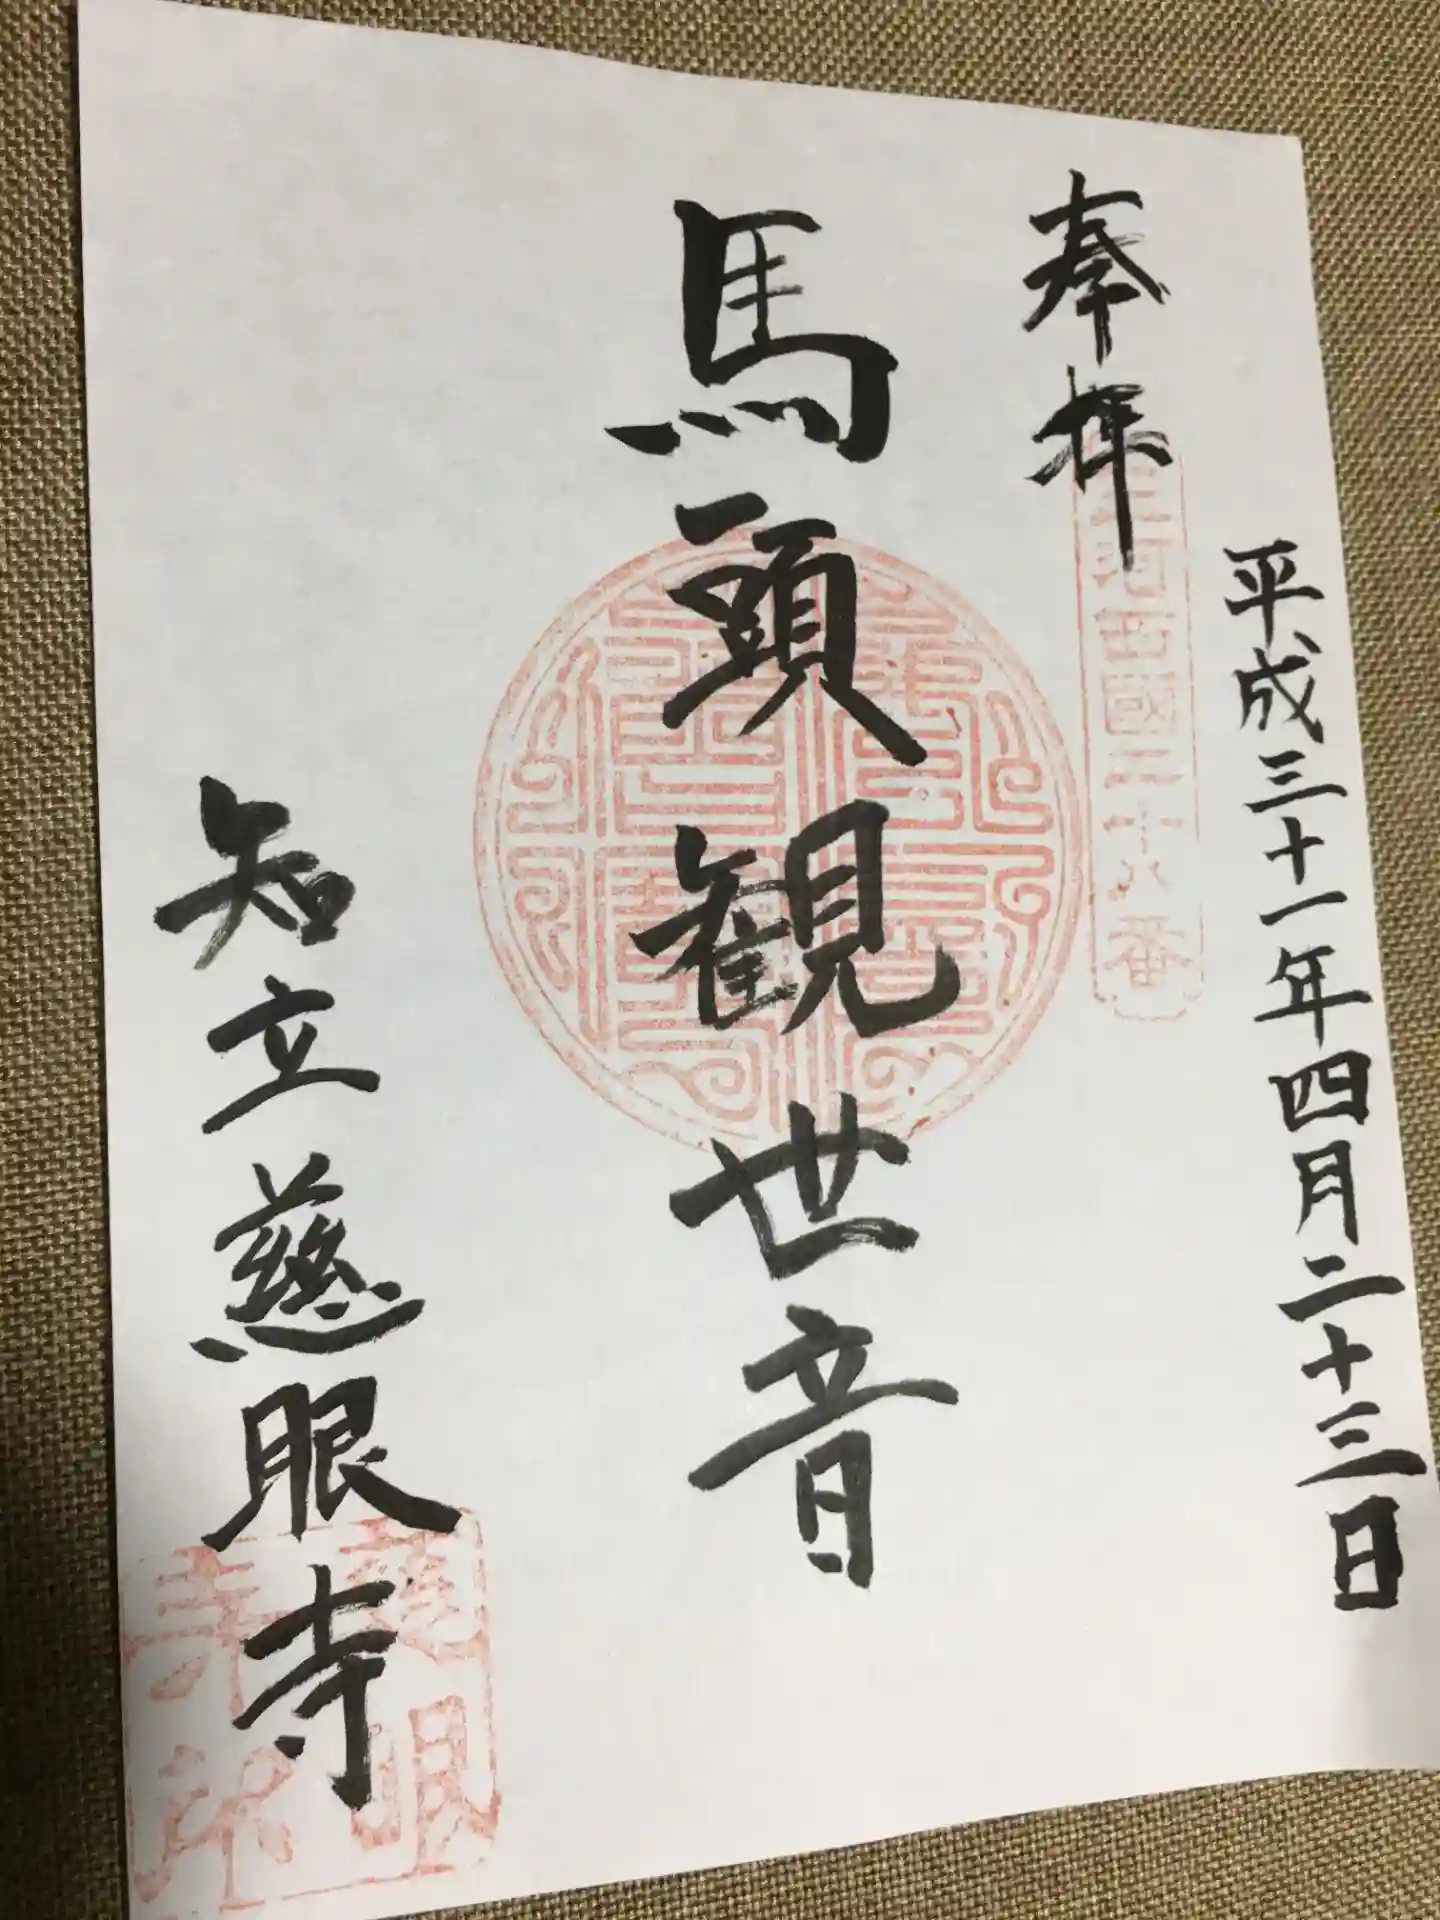 平成三十一年四月二十三日
奉拝
三河西國二十八番
馬頭観世音
知立慈眼寺
慈眼寺印